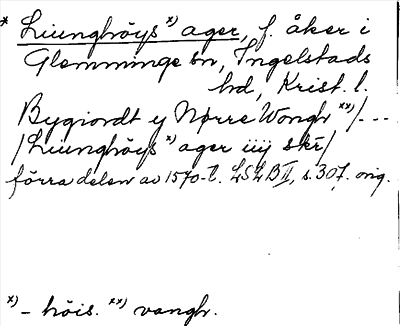 * Liunghöys x) ager, f. åker i
Glemminge sn, Ingelstads
hd, Krist. l.
Bygiordt y Nørre Wongh xx) /---
/Liunghöys x) ager iiij skr/
förra delen av 1570-t. LSLB II, s. 307. orig.
x) - höis. xx) vangh.